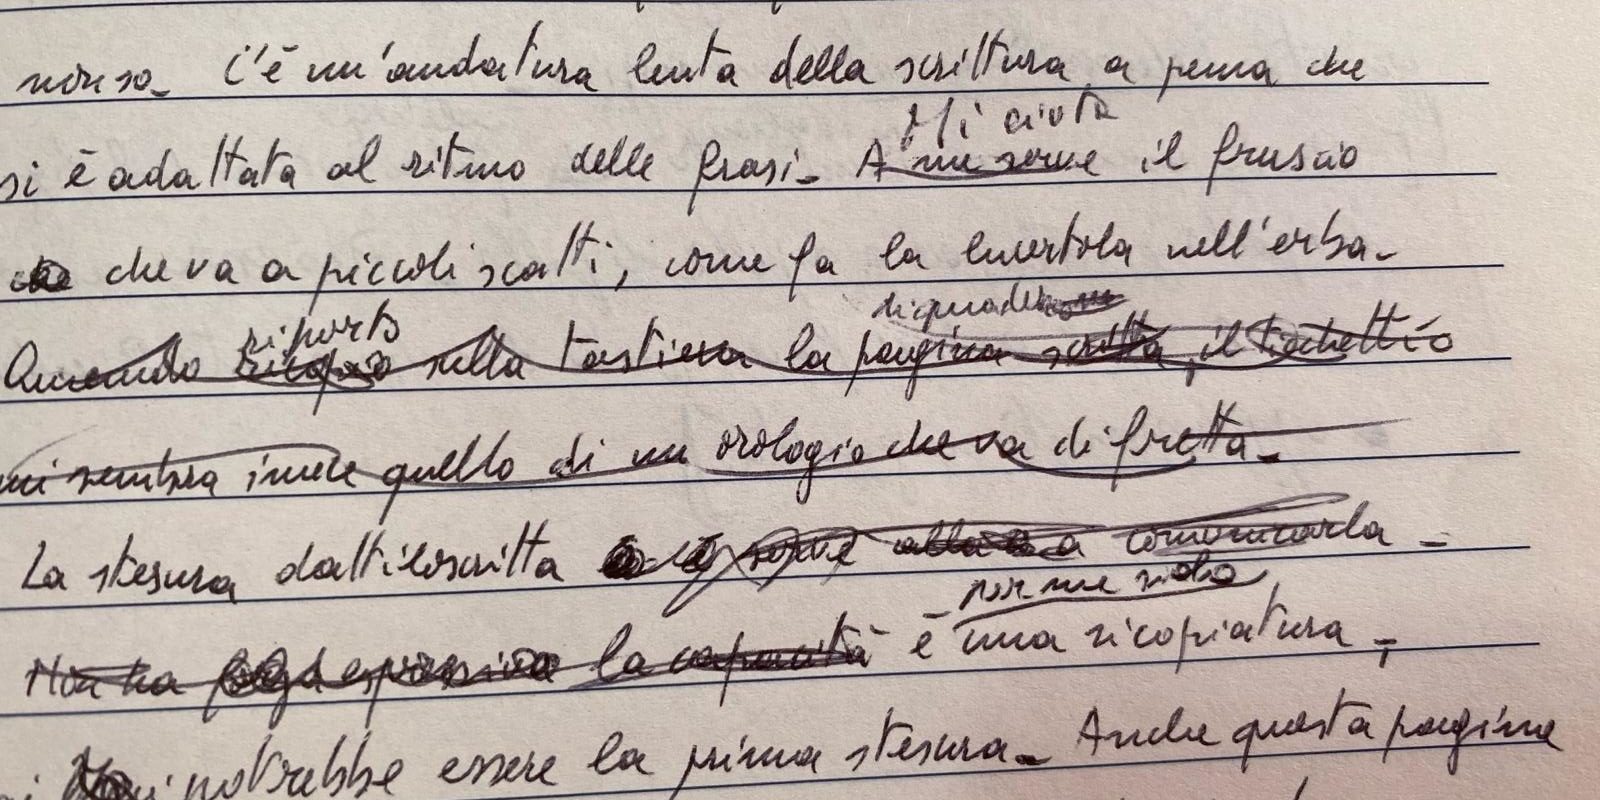 C'è un'andatura lenta della scrittura a pena che
si è adattata al ritmo delle frasi. A me serve il fruscio
Mi aiuta
che va a piccoli scatti, come fa la lucertola nell'erba.
riporto
di quaderno
Quando ricopio sulla tastiera la pagina scritta, il tichettio
mi sembra invece quello di un orologio che va di fretta.
La stesura dattiloscritta serve a comunicarla.
per me solo
Non ha espressiva la capacità è una ricopiatura,
potrebbe essere la prima stesura. Anche questa pagina